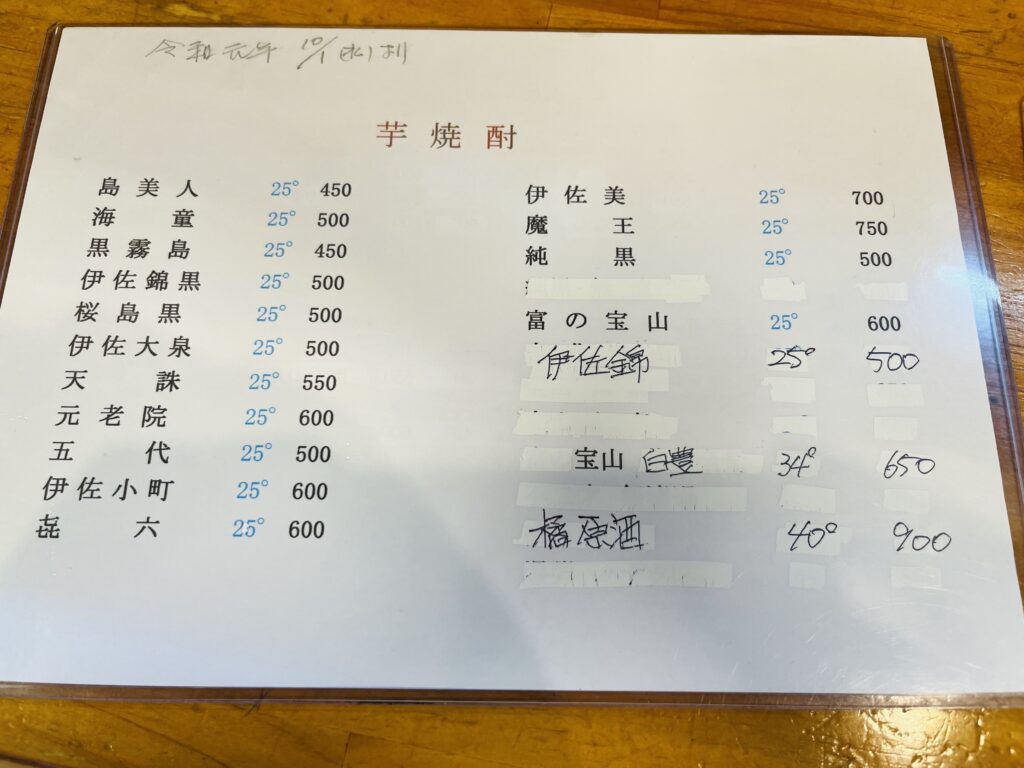 令和元年 10/1(水)より
芋焼酎
島美人 25° 450
海童 25° 500
黒霧島 25° 450
伊佐錦黒 25° 500
桜島黒 25° 500
伊佐大泉 25° 500
天誅 25° 550
元老院 25° 600
五代 25° 500
伊佐小町 25° 600
㐂六 25° 600
伊佐美 25° 700
魔王 25° 750
純黒 25° 500
富の宝山 25° 600
伊佐錦 25° 500
宝山 白豊 34° 650
橘原酒 40° 900